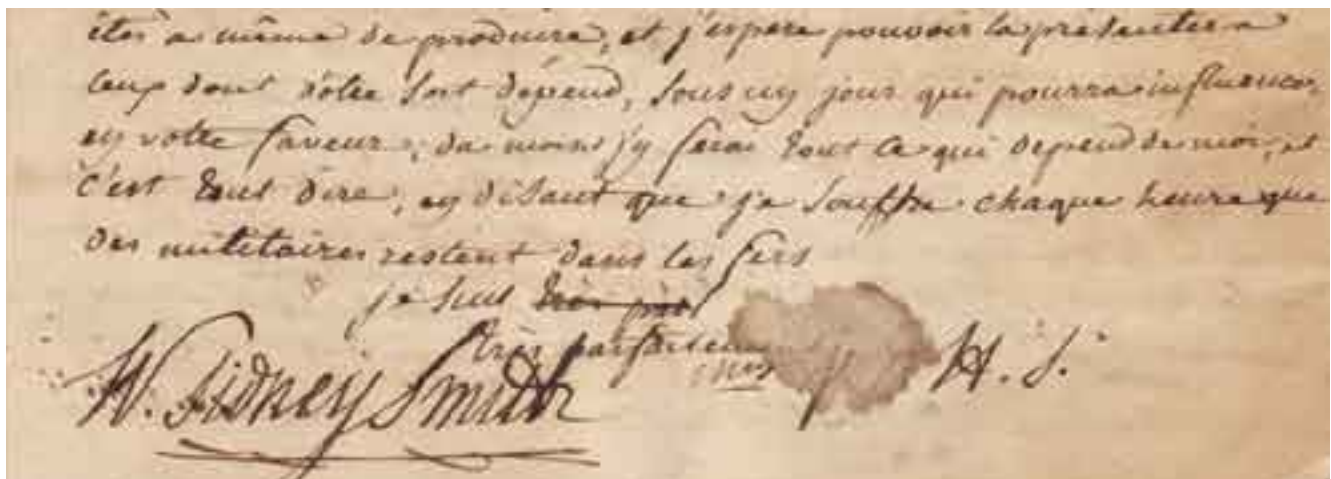 êtes à même de produire, et j'espere pouvoir la présenter à
ceux dont votre sort dépend, sous un jour qui pourra influencer,
en votre faveur; du moins j'y ferai tout ce qui depend de moi, et
c'est tout dire, en disant que je souffre chaque heure que
des militaires restent dans les fers
je suis
très parfaitem
H. S.
W. Sidney Smith